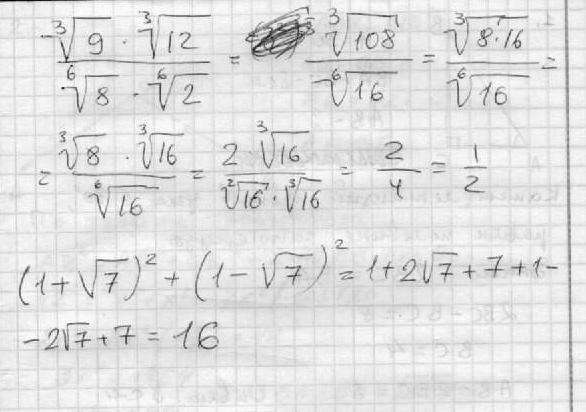 -∛9 · ∛12 / ⁶√8 · ⁶√2 = ∛108 / ⁶√16 = ∛8·16 / ⁶√16 =
= ∛8 · ∛16 / ⁶√16 = 2 ∛16 / ²√16 · ∛16 = 2/4 = 1/2
(1+√7)² + (1-√7)² = 1+2√7+7+1-
-2√7+7 = 16